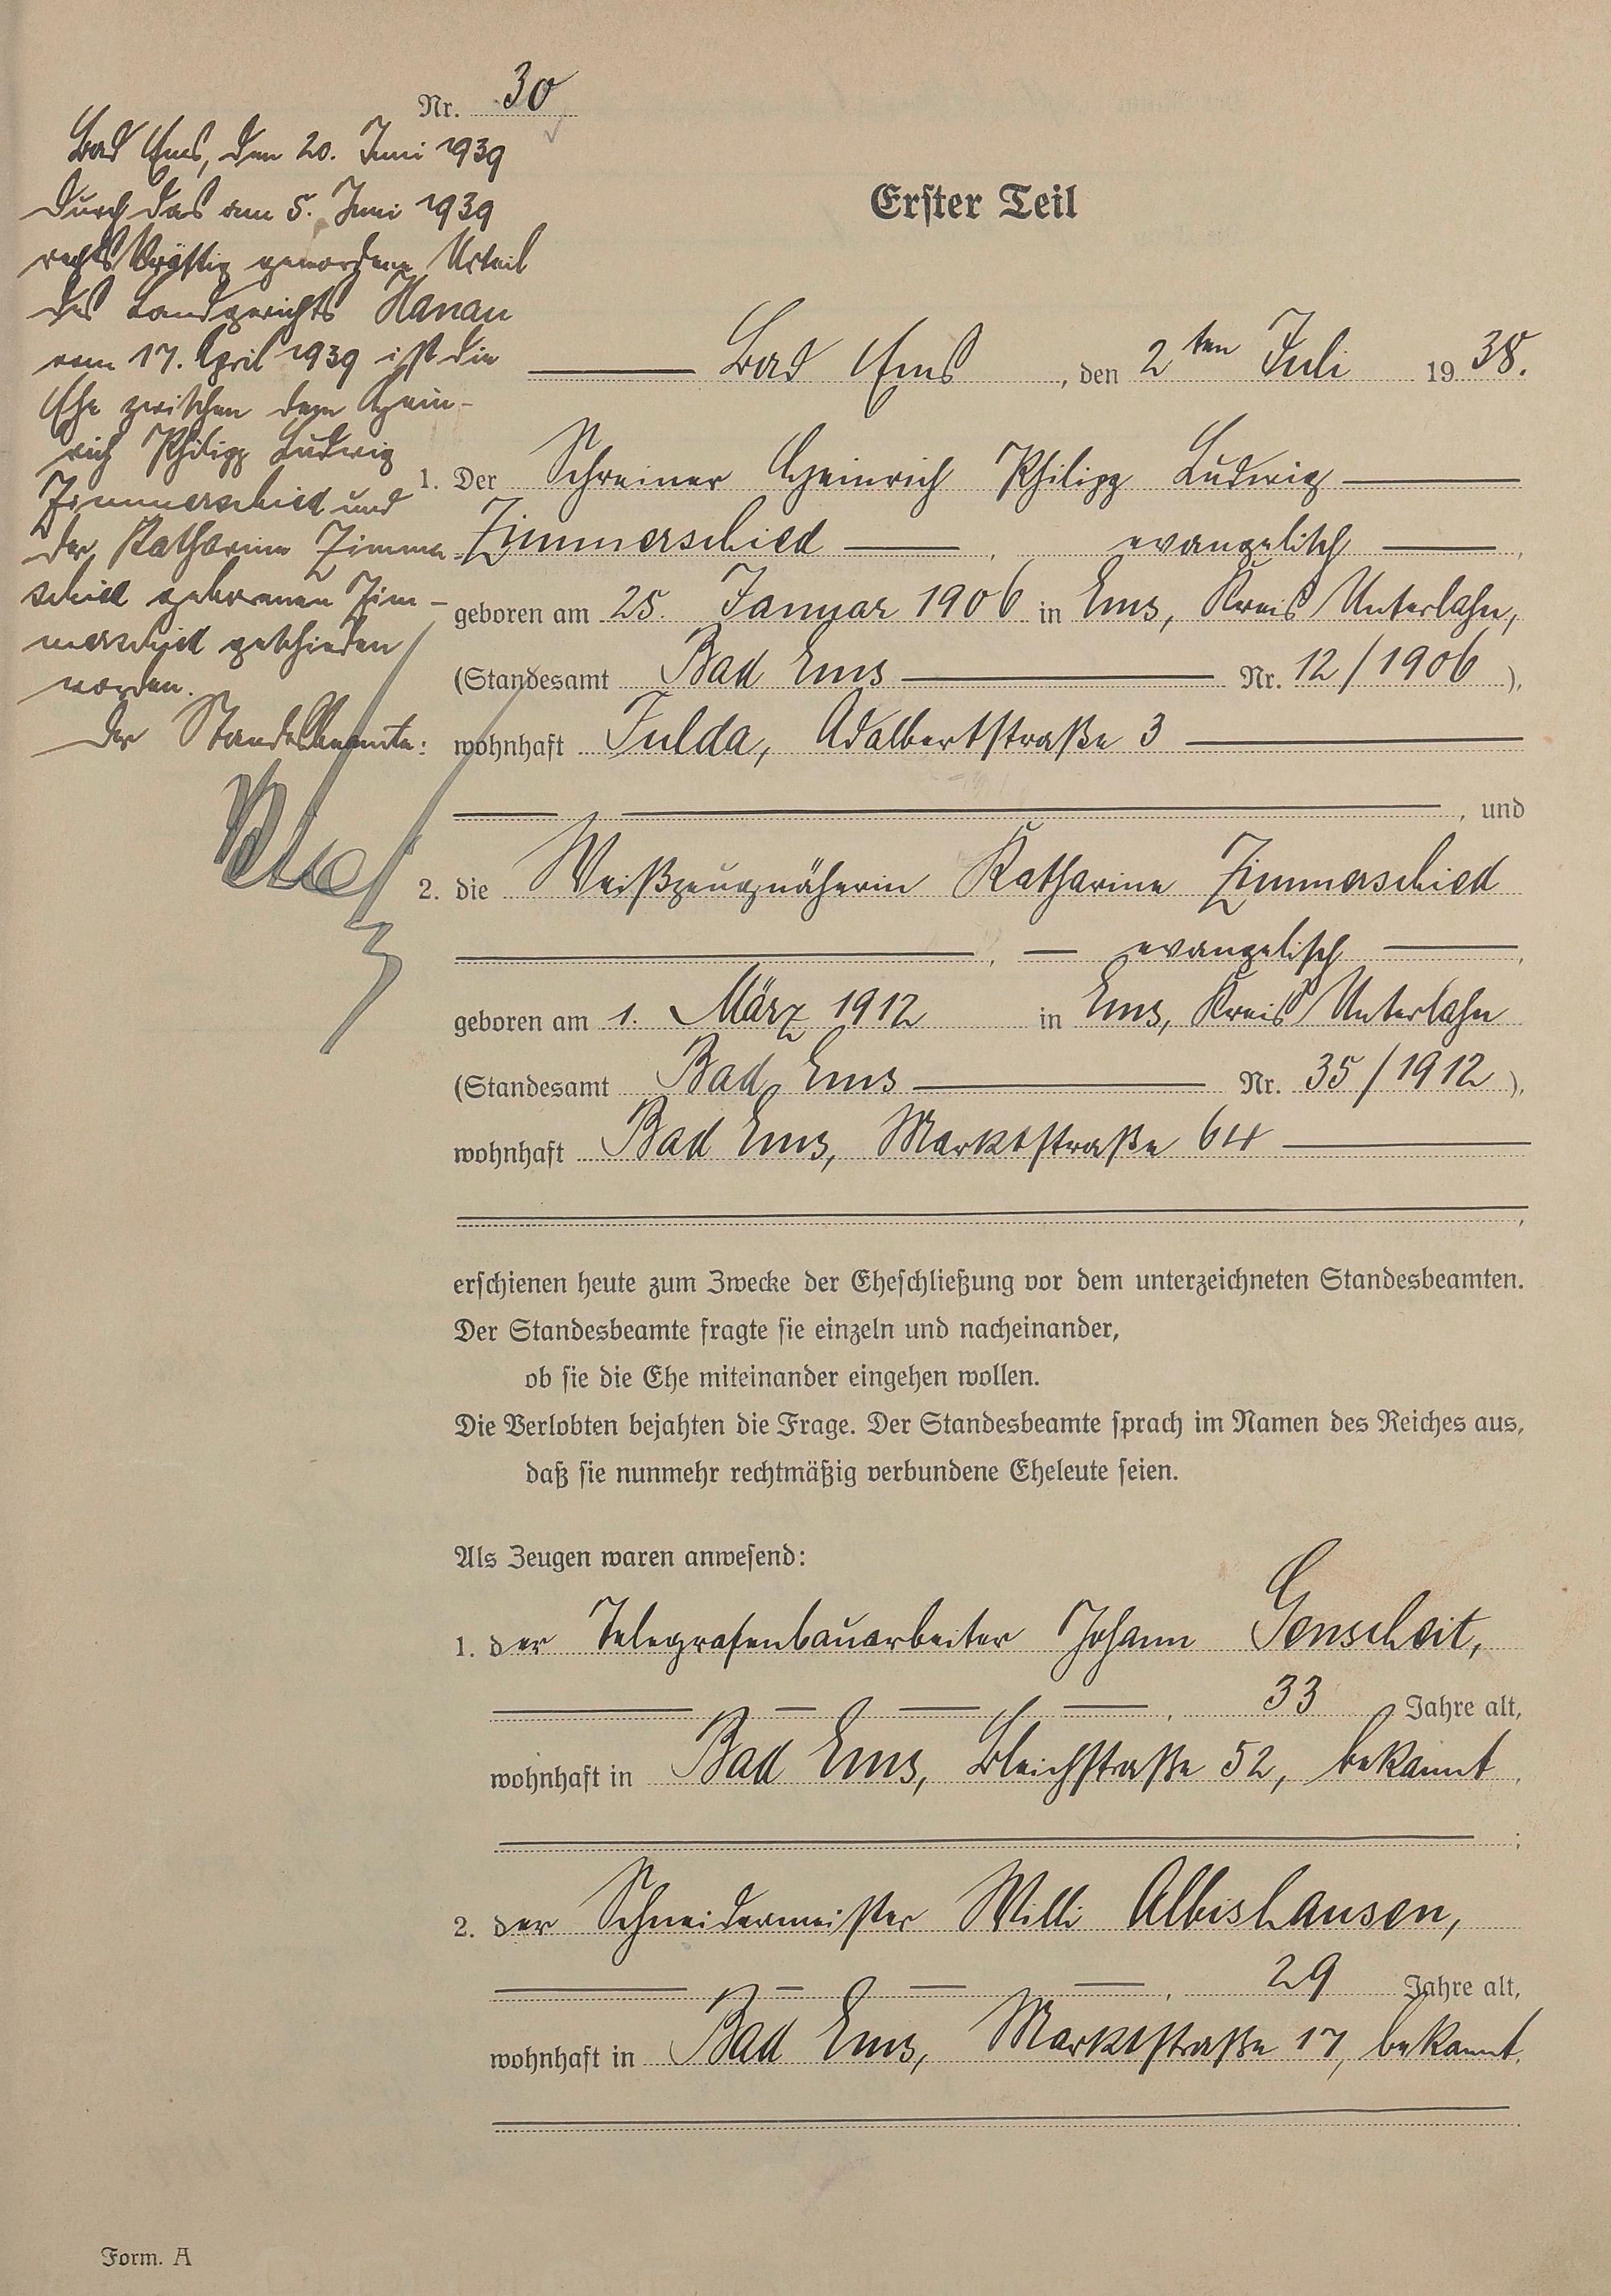 Nr. 30
Bad Ems, den 20. Juni 1939
Durch das am 5. Juni 1939
rechtskräftig gewordene Urteil
des Landgerichts Hanau
vom 17. April 1939 ist die
Ehe zwischen dem Hein-
rich Philipp Ludwig
Zimmerschied und
der Katharine Zimmer
schied geborenen Zim-
merschied geschieden
worden.
Der Standesbeamte:
Erster Teil
Bad Ems, den 2ten Juli 1938.
1. Der Schreiner Heinrich Philipp Ludwig
Zimmerschied, evangelisch,
geboren am 25. Januar 1906 in Ems, Kreis Unterlahn,
(Standesamt Bad Ems Nr. 12/1906),
wohnhaft Fulda, Adalbertstraße 3
, und
2. die Weißzeugnäherin Katharine Zimmerschied
, evangelisch,
geboren am 1. März 1912 in Ems, Kreis Unterlahn
(Standesamt Bad Ems Nr. 35/1912),
wohnhaft Bad Ems, Marktstraße 64
,
erschienen heute zum Zwecke der Eheschließung vor dem unterzeichneten Standesbeamten.
Der Standesbeamte fragte sie einzeln und nacheinander,
ob sie die Ehe miteinander eingehen wollen.
Die Verlobten bejahten die Frage. Der Standesbeamte sprach im Namen des Reiches aus,
daß sie nunmehr rechtmäßig verbundene Eheleute seien.
Als Zeugen waren anwesend:
1. der Telegrafenbauarbeiter Johann Genscheit,
, 33 Jahre alt,
wohnhaft in Bad Ems, Bleichstraße 52, bekannt,
;
2. der Schneidermeister Willi Albishausen,
, 29 Jahre alt,
wohnhaft in Bad Ems, Marktstraße 17, bekannt.
.
Form. A